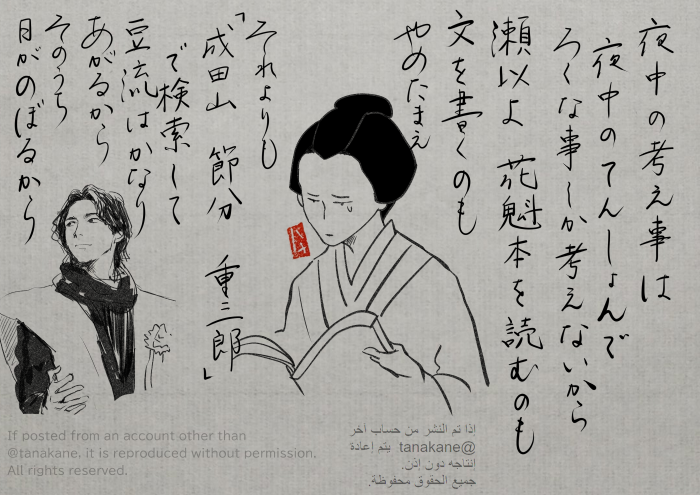 夜中の考え事は
夜中のてんしょんで
ろくな事しか考えないから
瀬以よ 花魁本を読むのも
文を書くのも
やめたまえ
それよりも
「成田山 節分 重三郎」
で検索して
豆流はかなり
あがるから
そのうち
日がのぼるから
If posted from an account other than
@tanakane, it is reproduced without permission.
All rights reserved.
إذا تم النشر من حساب آخر
@tanakane يتم إعادة
إنتاجه دون إذن.
جميع الحقوق محفوظة.